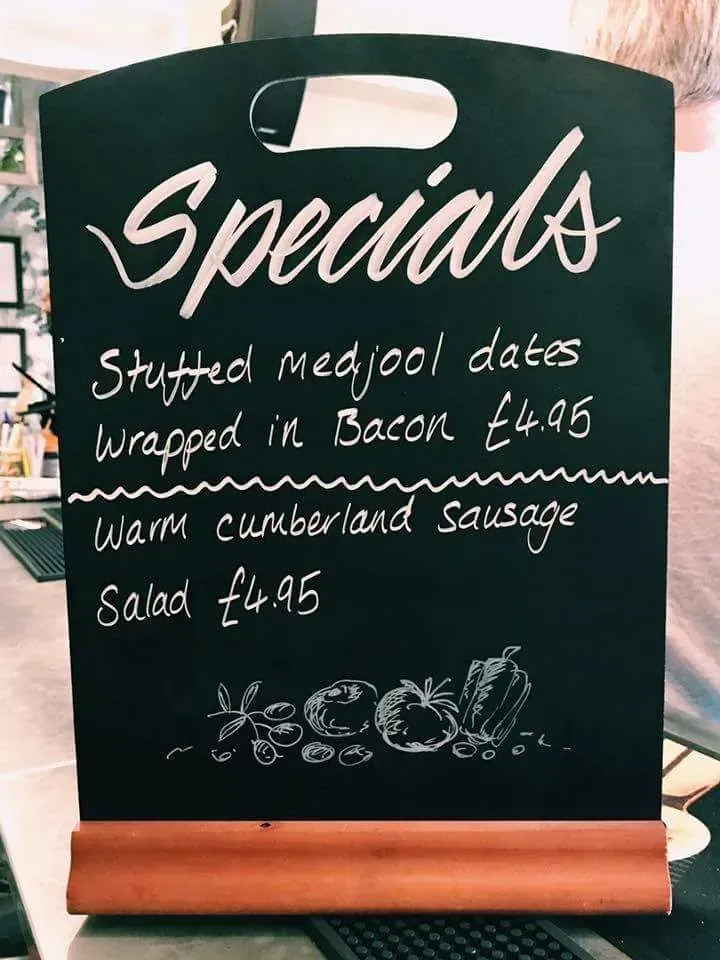 Specials
Stuffed medjool dates
Wrapped in Bacon £4.95
Warm cumberland sausage
Salad £4.95